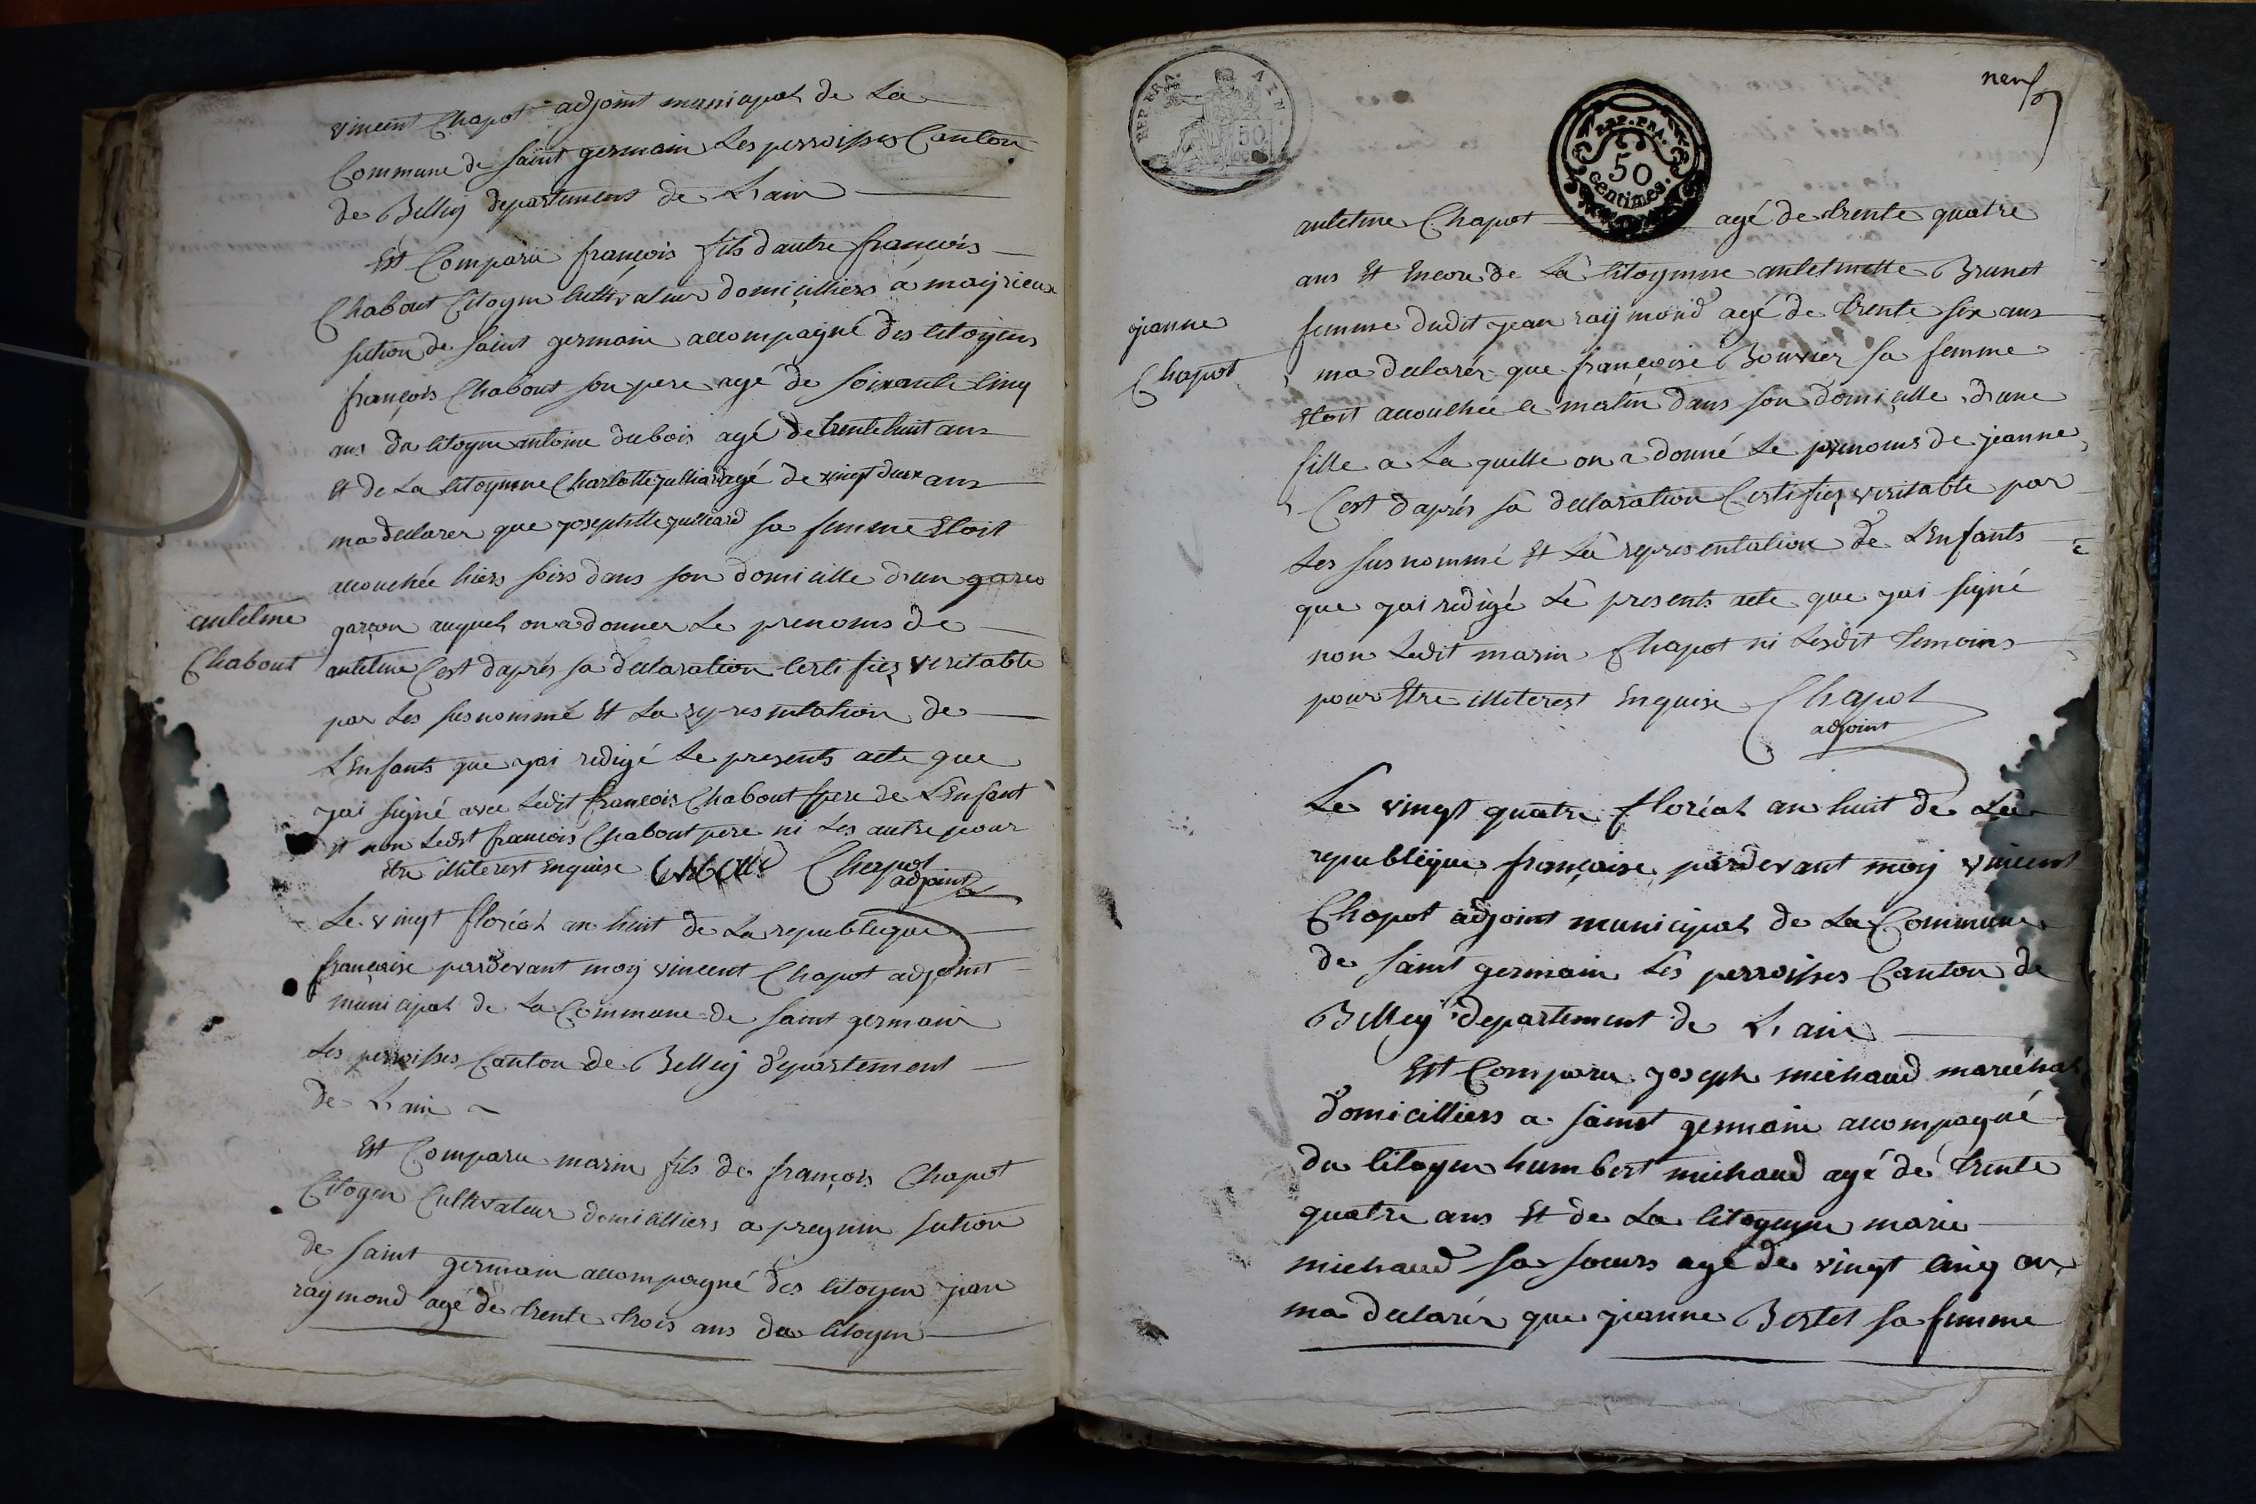 vincent Chapot adjoint municipal de La
Commune de saint germain Les perroisses Canton
de Belley departement de L'ain
Est Comparu françois fils d'autre françois
Chabout Citoyen Cultivateur domicilliers a mayrieux
section de saint germain accompagné des Citoyens
françois Chabout son pere agé de soixante Cinq
ans du Citoyen antoine dubois agé de trente huit ans
Et de La Citoyenne Charlotte julliard agé de vingt deux ans
ma declarer que josephtte julliard sa femme Etoit
accouchée hiers soirs dans son domicille d'un garco
garçon auquel on a donner Le prenoms de
antelme C'est d'aprés sa declaration Certifiez veritable
par Les susnommé Et La representation de
L'Enfants que j'ai redigé Le presents acte que
j'ai signé avec Ledit françois Chabout pere de L'Enfant
Et non Ledit françois Chabout pere ni Les autre pour
Etre illiterest Enquise Chapot
adjoint
antelme
Chabout
Le vingt floréal an huit de La republeque
françaire pardevant moy vincent Chapot adjoint
municipal de La Commune de saint germain
Les perroisses Canton de Belley departement
de L'ain
Est Comparu marin fils de françois Chapot
Citoyen Cultivateur domicilliers a preynin section
de saint germain accompagné des Citoyen jean
raymond agé de trente trois ans du Citoyen
REP. FRA. AIN.
50
REP. FRA.
50
centimes.
neuf
antelme Chapot agé de trente quatre
ans Et Encore de La Citoyenne antelmette Brunet
femme dudit jean raymond agé de trente six ans
ma declarér que françoise Bouvier sa femme
Etoit accouchée ce matin dans son domicille d'une
fille a La quelle on a donné Le prenoms de jeanne
C'est d'aprés sa declaration Certifiez veritable par
Les susnommé Et La representation de L'Enfants
que j'ai redigé Le presents acte que j'ai signé
non Ledit marin Chapot ni Lesdit temoins
pour Etre illiterest Enquise Chapot
adjoint
jeanne
Chapot
Le vingt quatre floréal an huit de La
republéque françoise pardevant moy vincent
Chapot adjoint municipal de La Commune
de saint germain Les perroisses Canton de
Belley departement de L'ain
Est Comparu joseph michaud maréchal
domicilliers a saint germain accompagné
du Citoyen humbert michaud agé de trente
quatre ans Et de La Citoyenne marie
michaud sa soeurs agé de vingt Cinq an
ma declarér que jeanne Bertet sa femme